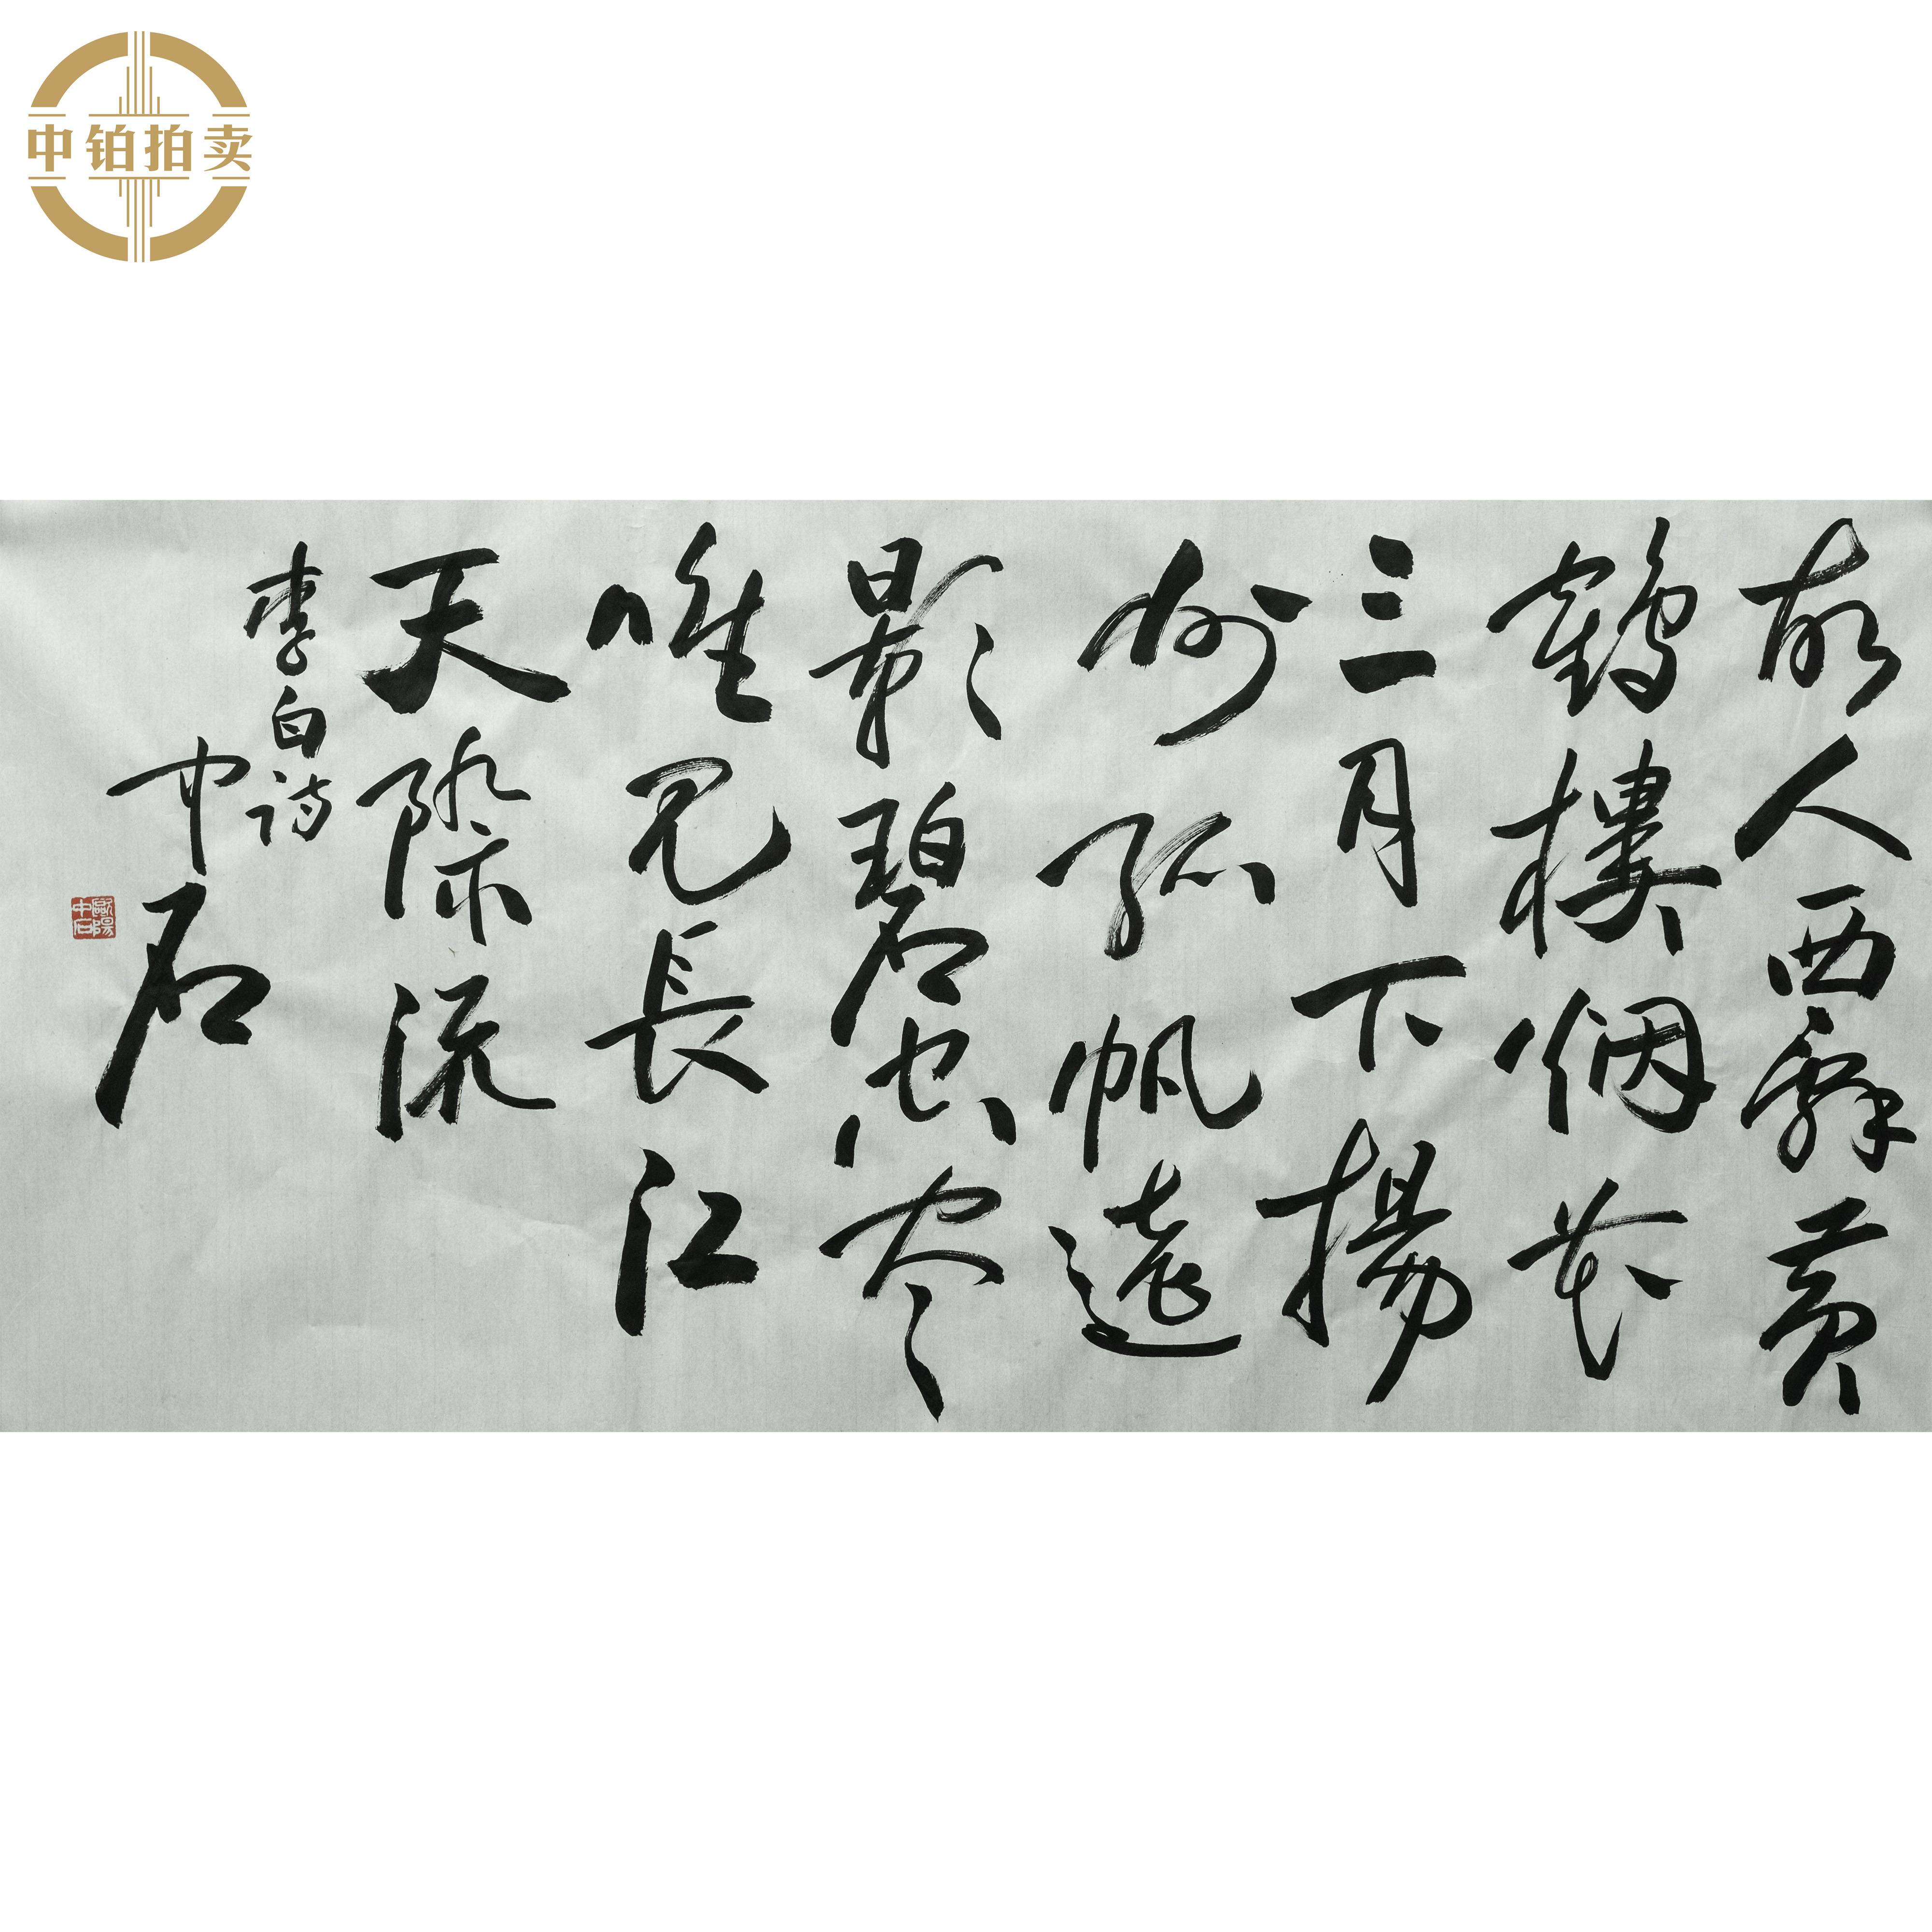 中铂拍卖
故人西辭黄
鹤樓烟花
三月下揚
州孤帆遠
影碧空尽
唯见長江
天際流
李白诗
中石
歐陽中石